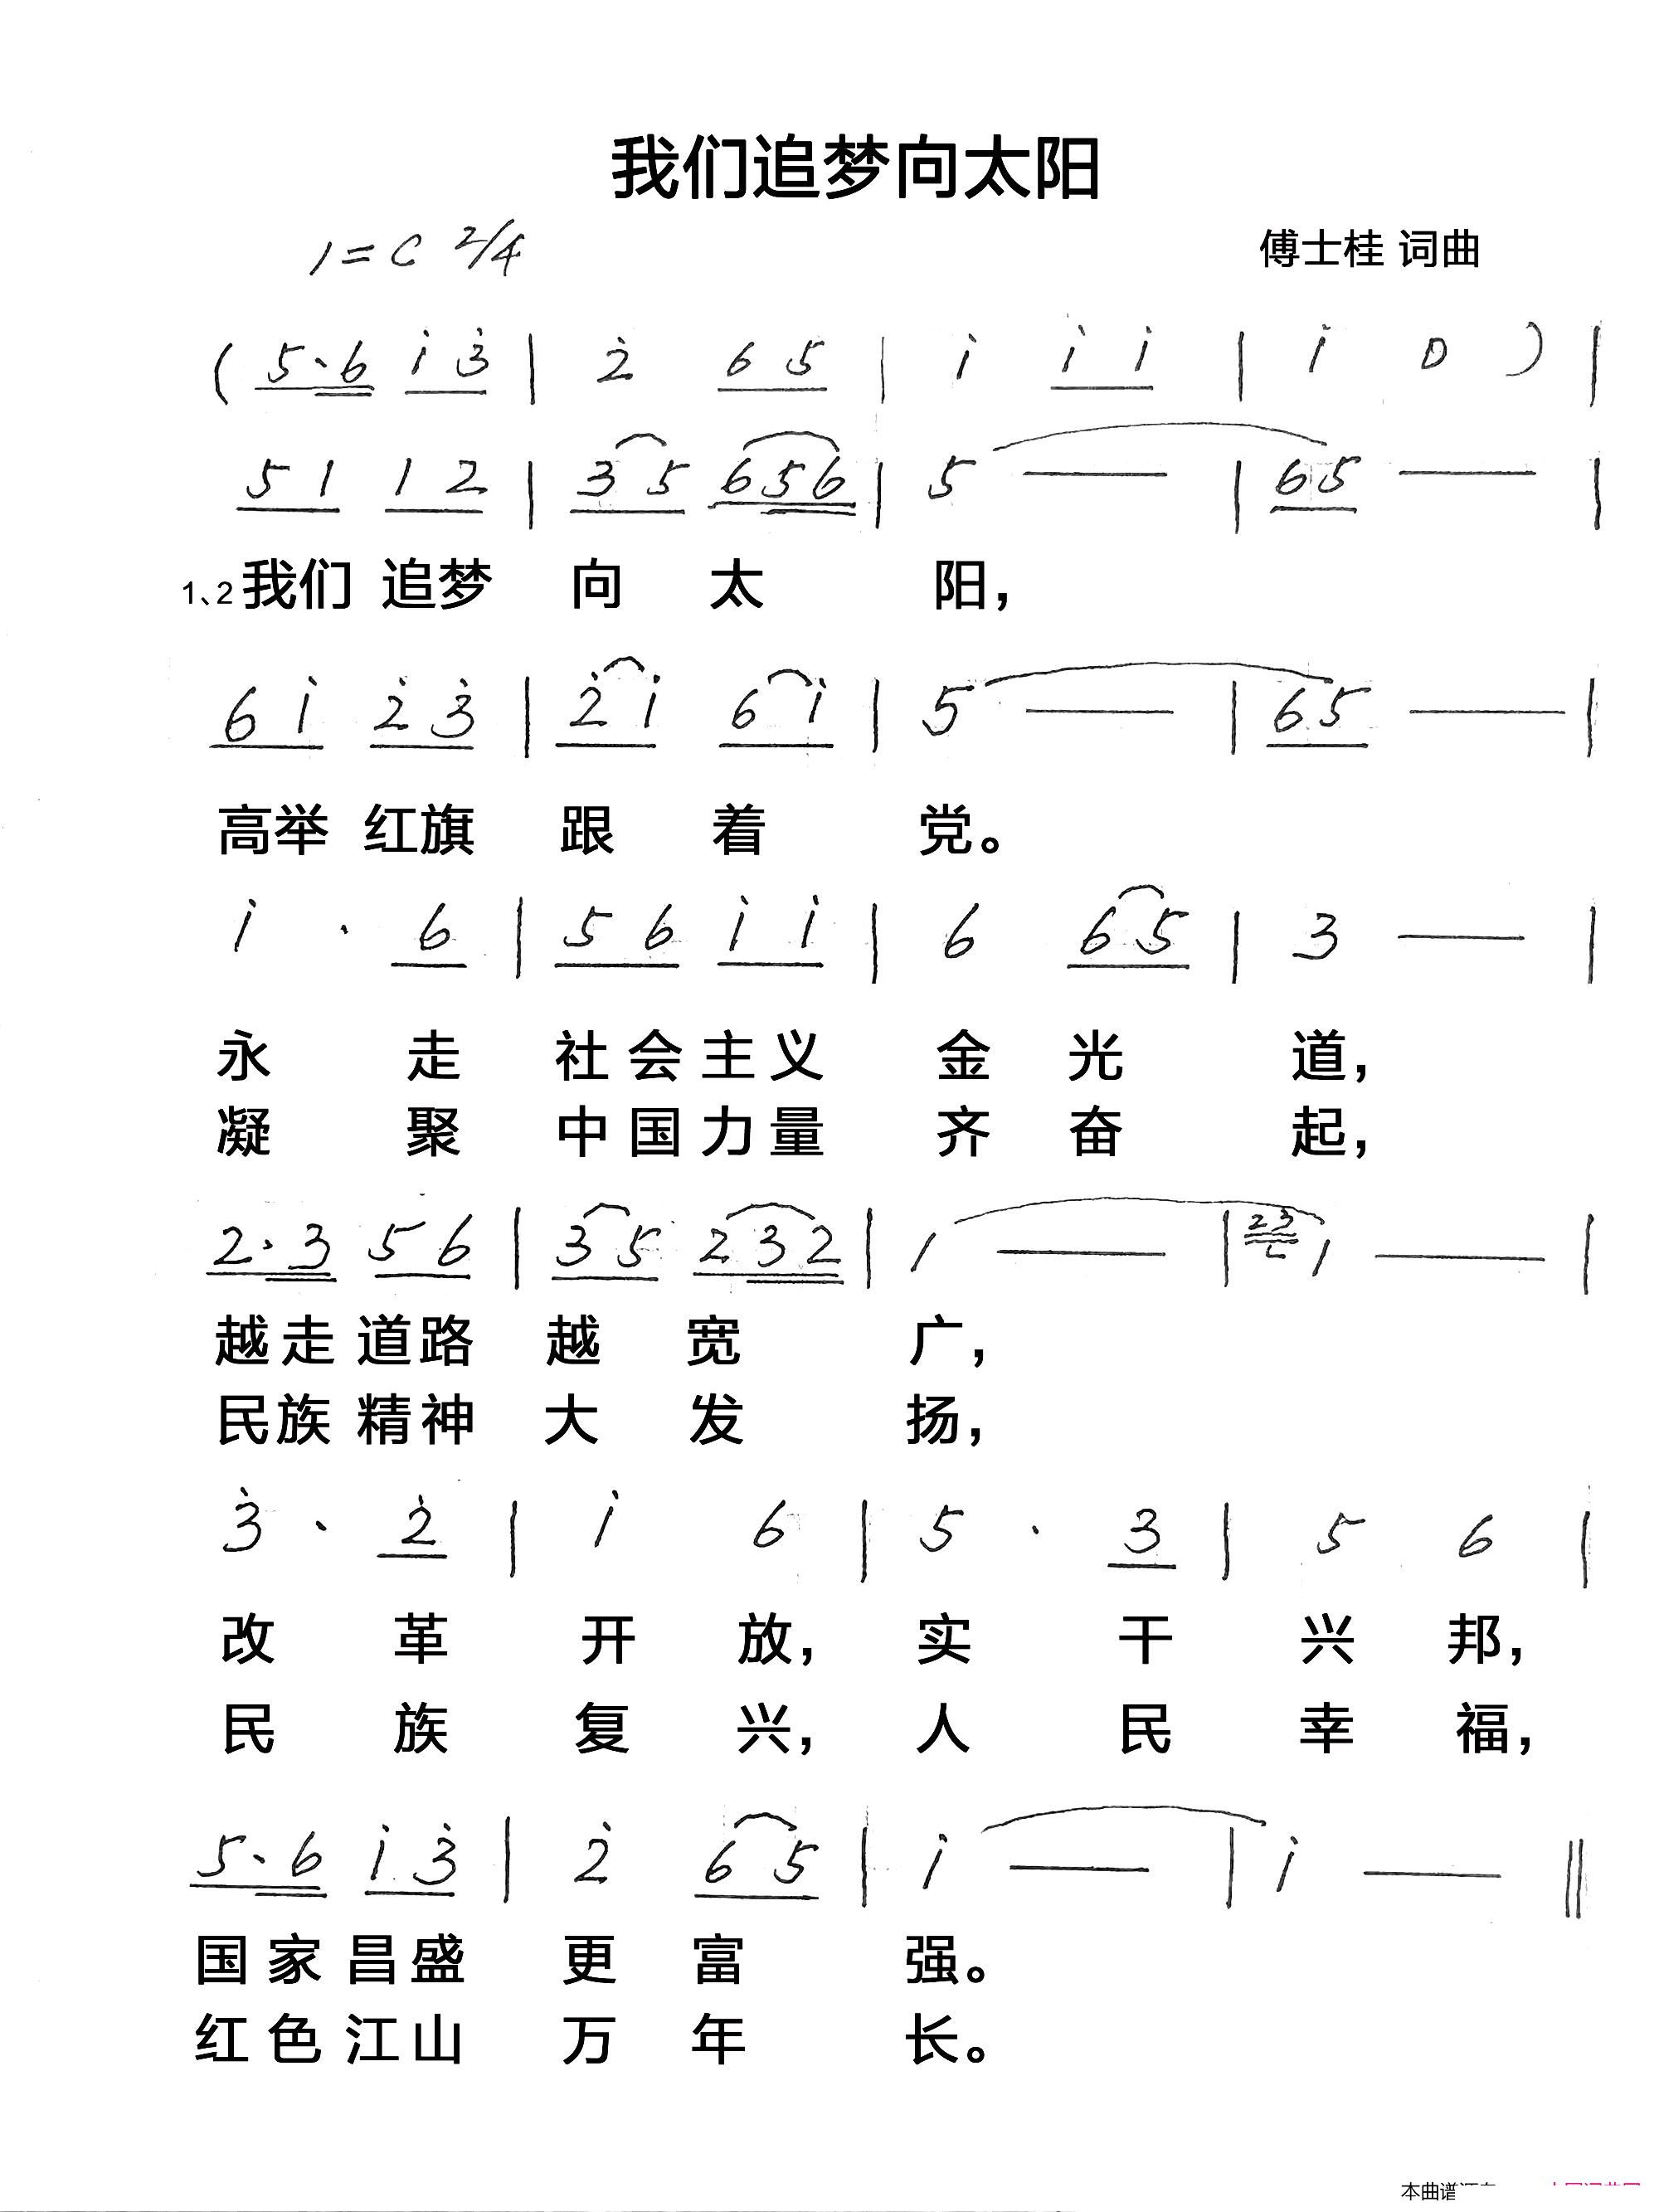 我们追梦向太阳
1=C 2/4 傅士桂 词曲
( 5·6 i 3̇ | 2̇ 6 5 | i i i | i 0 ) |
5 1 1 2 | 3 5 6 5 6 | 5 — | 6 5 — |
1、2 我们 追梦 向 太 阳，
6 i 2̇ 3̇ | 2̇ i 6 i | 5 — | 6 5 — |
高举 红旗 跟 着 党。
i · 6 | 5 6 i i | 6 6 5 | 3 — |
永 走 社 会 主 义 金 光 道，
凝 聚 中 国 力 量 齐 奋 起，
2·3 5 6 | 3 5 2 3 2 | 1 — | 2 3 1 — |
越 走 道 路 越 宽 广，
民 族 精 神 大 发 扬，
3̇ · 2̇ | i 6 | 5 · 3 | 5 6 |
改 革 开 放， 实 干 兴 邦，
民 族 复 兴， 人 民 幸 福，
5·6 i 3̇ | 2̇ 6 5 | i — | i — ‖
国 家 昌 盛 更 富 强。
红 色 江 山 万 年 长。
本曲谱